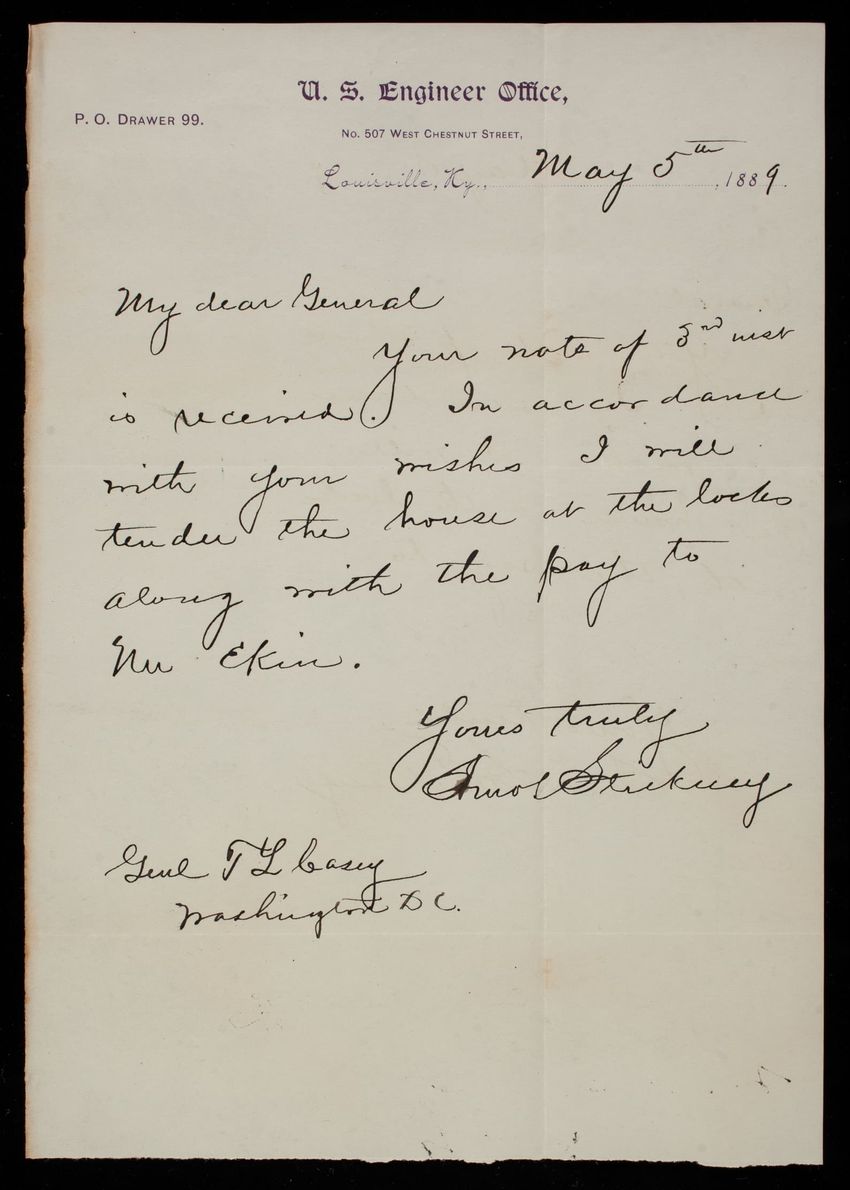 U. S. Engineer Office,
P. O. DRAWER 99.
No. 507 WEST CHESTNUT STREET,
Louisville, Ky., May 5th, 1889.
My dear General
Your note of 3rd inst
is received. In accordance
with your wishes I will
tender the house at the locks
along with the pay to
Mr Ekin.
Yours truly
Amos Stickney
Genl T L Casey
Washington D C.